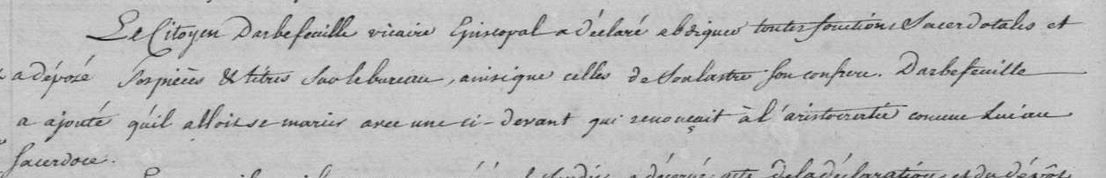 Le Citoyen Darbefeuille vicaire Episcopal a déclaré abdiquer toutes fonctions Sacerdotales et
a déposé ses pièces & titres sur le bureau, ainsi que celles de Soulastre son confrere. Darbefeuille
a ajouté qu'il alloit se marier avec une ci-devant qui renonçait à l'aristocratie comme lui au
Sacerdoce.
a décerné acte de la déclaration et du dépôt